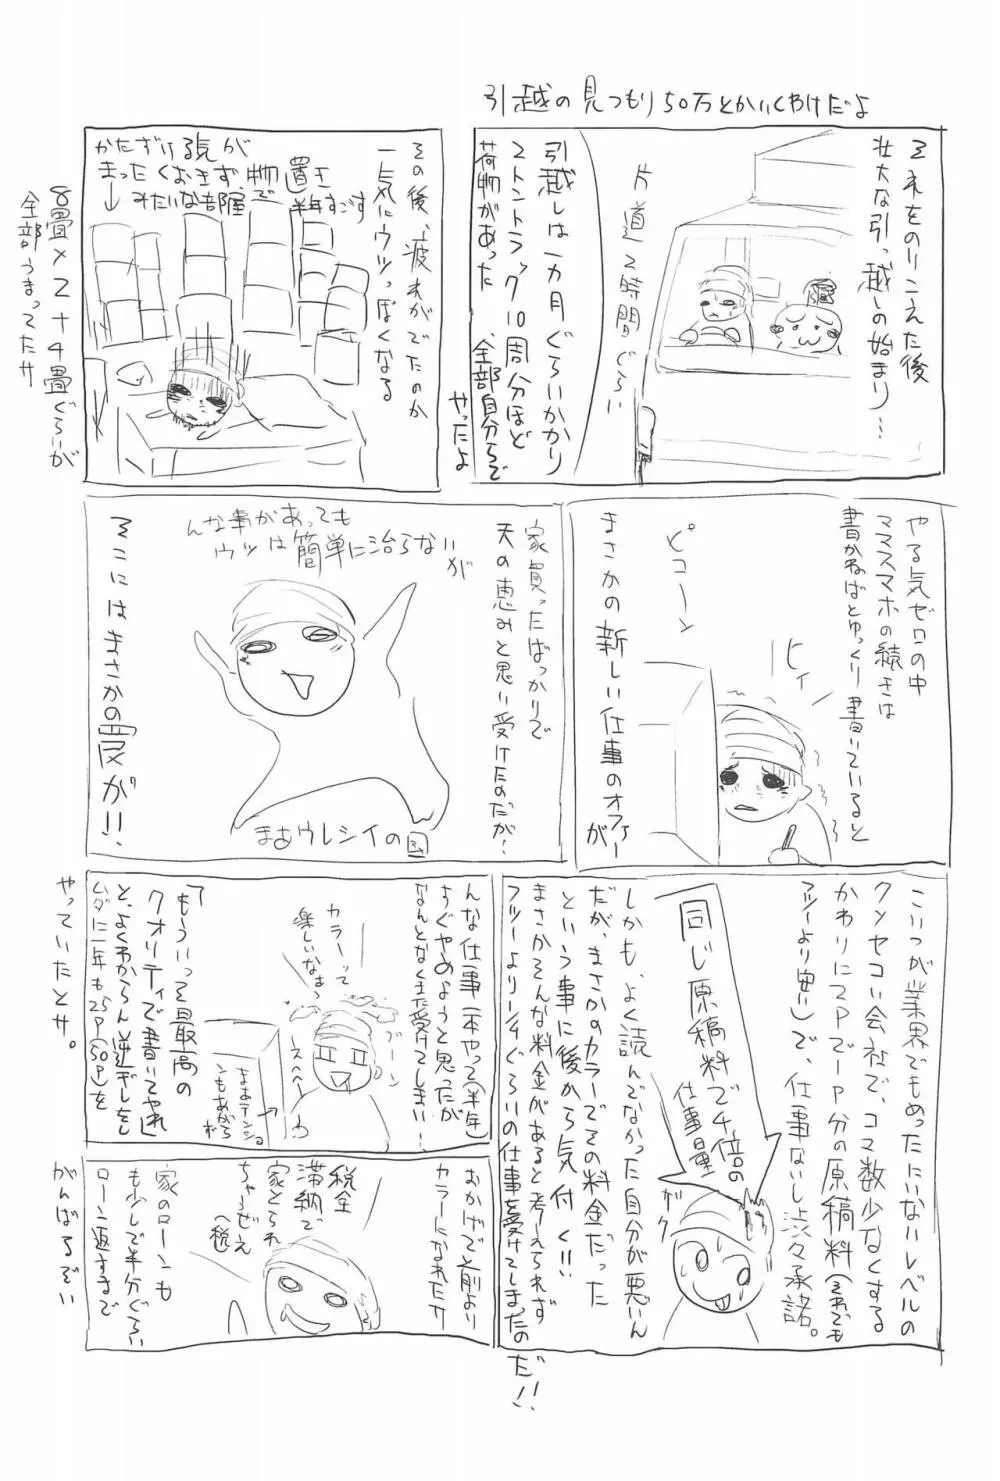 引越の見つもり50万とかいくわけだよ
それをのりこえた後
壮大な引っ越しの始まり…
片道2時間ぐらい
引越しは一カ月ぐらいかかり
2トントラック10周分ほど
荷物があった、全部自分らで
やったよ
その後、疲れがでたのか
一気にウツっぽくなる
かたずける気が
まったくおきず、物置き
みたいな部屋で半年すごす
8畳×2+4畳ぐらいが
全部うまってたサ
やる気ゼロの中
ママスマホの続きは
書かねばとゆっくり書いていると
ヒィ
ピコーン
まさかの新しい仕事のオファーが
家買ったばっかりで
天の恵みと思い受けたのだが、
んな事があっても
ウツは簡単に治らないが
まぁウレシイの図
そこにはまさかの罠が!!
こいつが業界でもめったにいないレベルの
クソセコい会社で、コマ数少なくする
かわりに2Pで1P分の原稿料(それでも
フツーより安い)で、仕事ないし渋々承諾。
同じ原稿料で4倍の
仕事量
ガク
しかも、よく読んでなかった自分が悪いん
だが、まさかのカラーでその料金だった
という事に後から気付く!!
まさかそんな料金があると考えられず
フツーより1/4ぐらいの仕事を受けてしまったの
だ!!
んな仕事一本やって(半年)
すぐやめようと思ったが
なんとなくまた受けてしまい…
カラーって
楽しいなぁっ
ブーン
スペペーわ
ままテンショ
ンもあがら
ず
「もういっそ最高の
クオリティで書いてやれ」
と、よくわからん逆ギレをし
ムダに一年も25P(50P)を
やっていたとサ。
おかげでと前より
カラーになれたサ
税金
滞納で
家とられ
ちゃうぜぇ
(税)
家のローンも
も少しで半分ぐらい
ローン返すまで
がんばるぞい